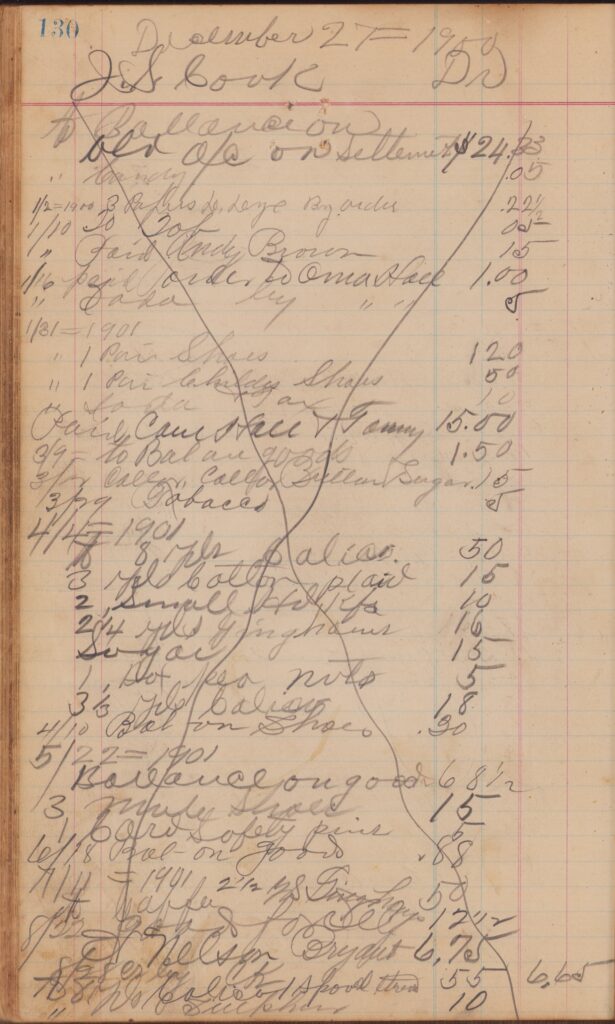 130
December 27 = 1900
J. S. Cook Dr
to Ballance on
old a/c on Settlement $24.33
" Candy .05
1/2 = 1900 3 Papers Dye By order .22 1/2
1/10 05
1 " Paid Andy Brown 15
1/16 paid order to Oma Hall 1.00
" Soda by " " 5
1/31 = 1901
" 1 Pair Shoes 120
" 1 Pair Childs Shoes 50
" Soda 10
Paid Cam Hall & Tommy 15.00
3/9 - to Bal on goods 1.50
Sugar 15
3/29 Tobacco 5
4/4 = 1901
To 8 yds Calico. 50
3 yds Cotton plaid 15
2, Small Hdkfs 10
2 1/4 yds Ginghams 16
Sugar 15
1, Box nuts 5
3 1/3 yds Calico 18
4/10 Bal on Shoes .30
5/22 = 1901
Ballance on goods 6 8 1/2
3, Mule Shoes 15
1, Card Safety pins 5
6/18 Bal- on goods .88
7/11 = 1901 2 1/2 yds Gingham
To Coffee 50
8/22 12 1/2
Nelson Bryant 6.75
8 yds Calico - 1 Spool thread 55 6.65
" Sulphur 10